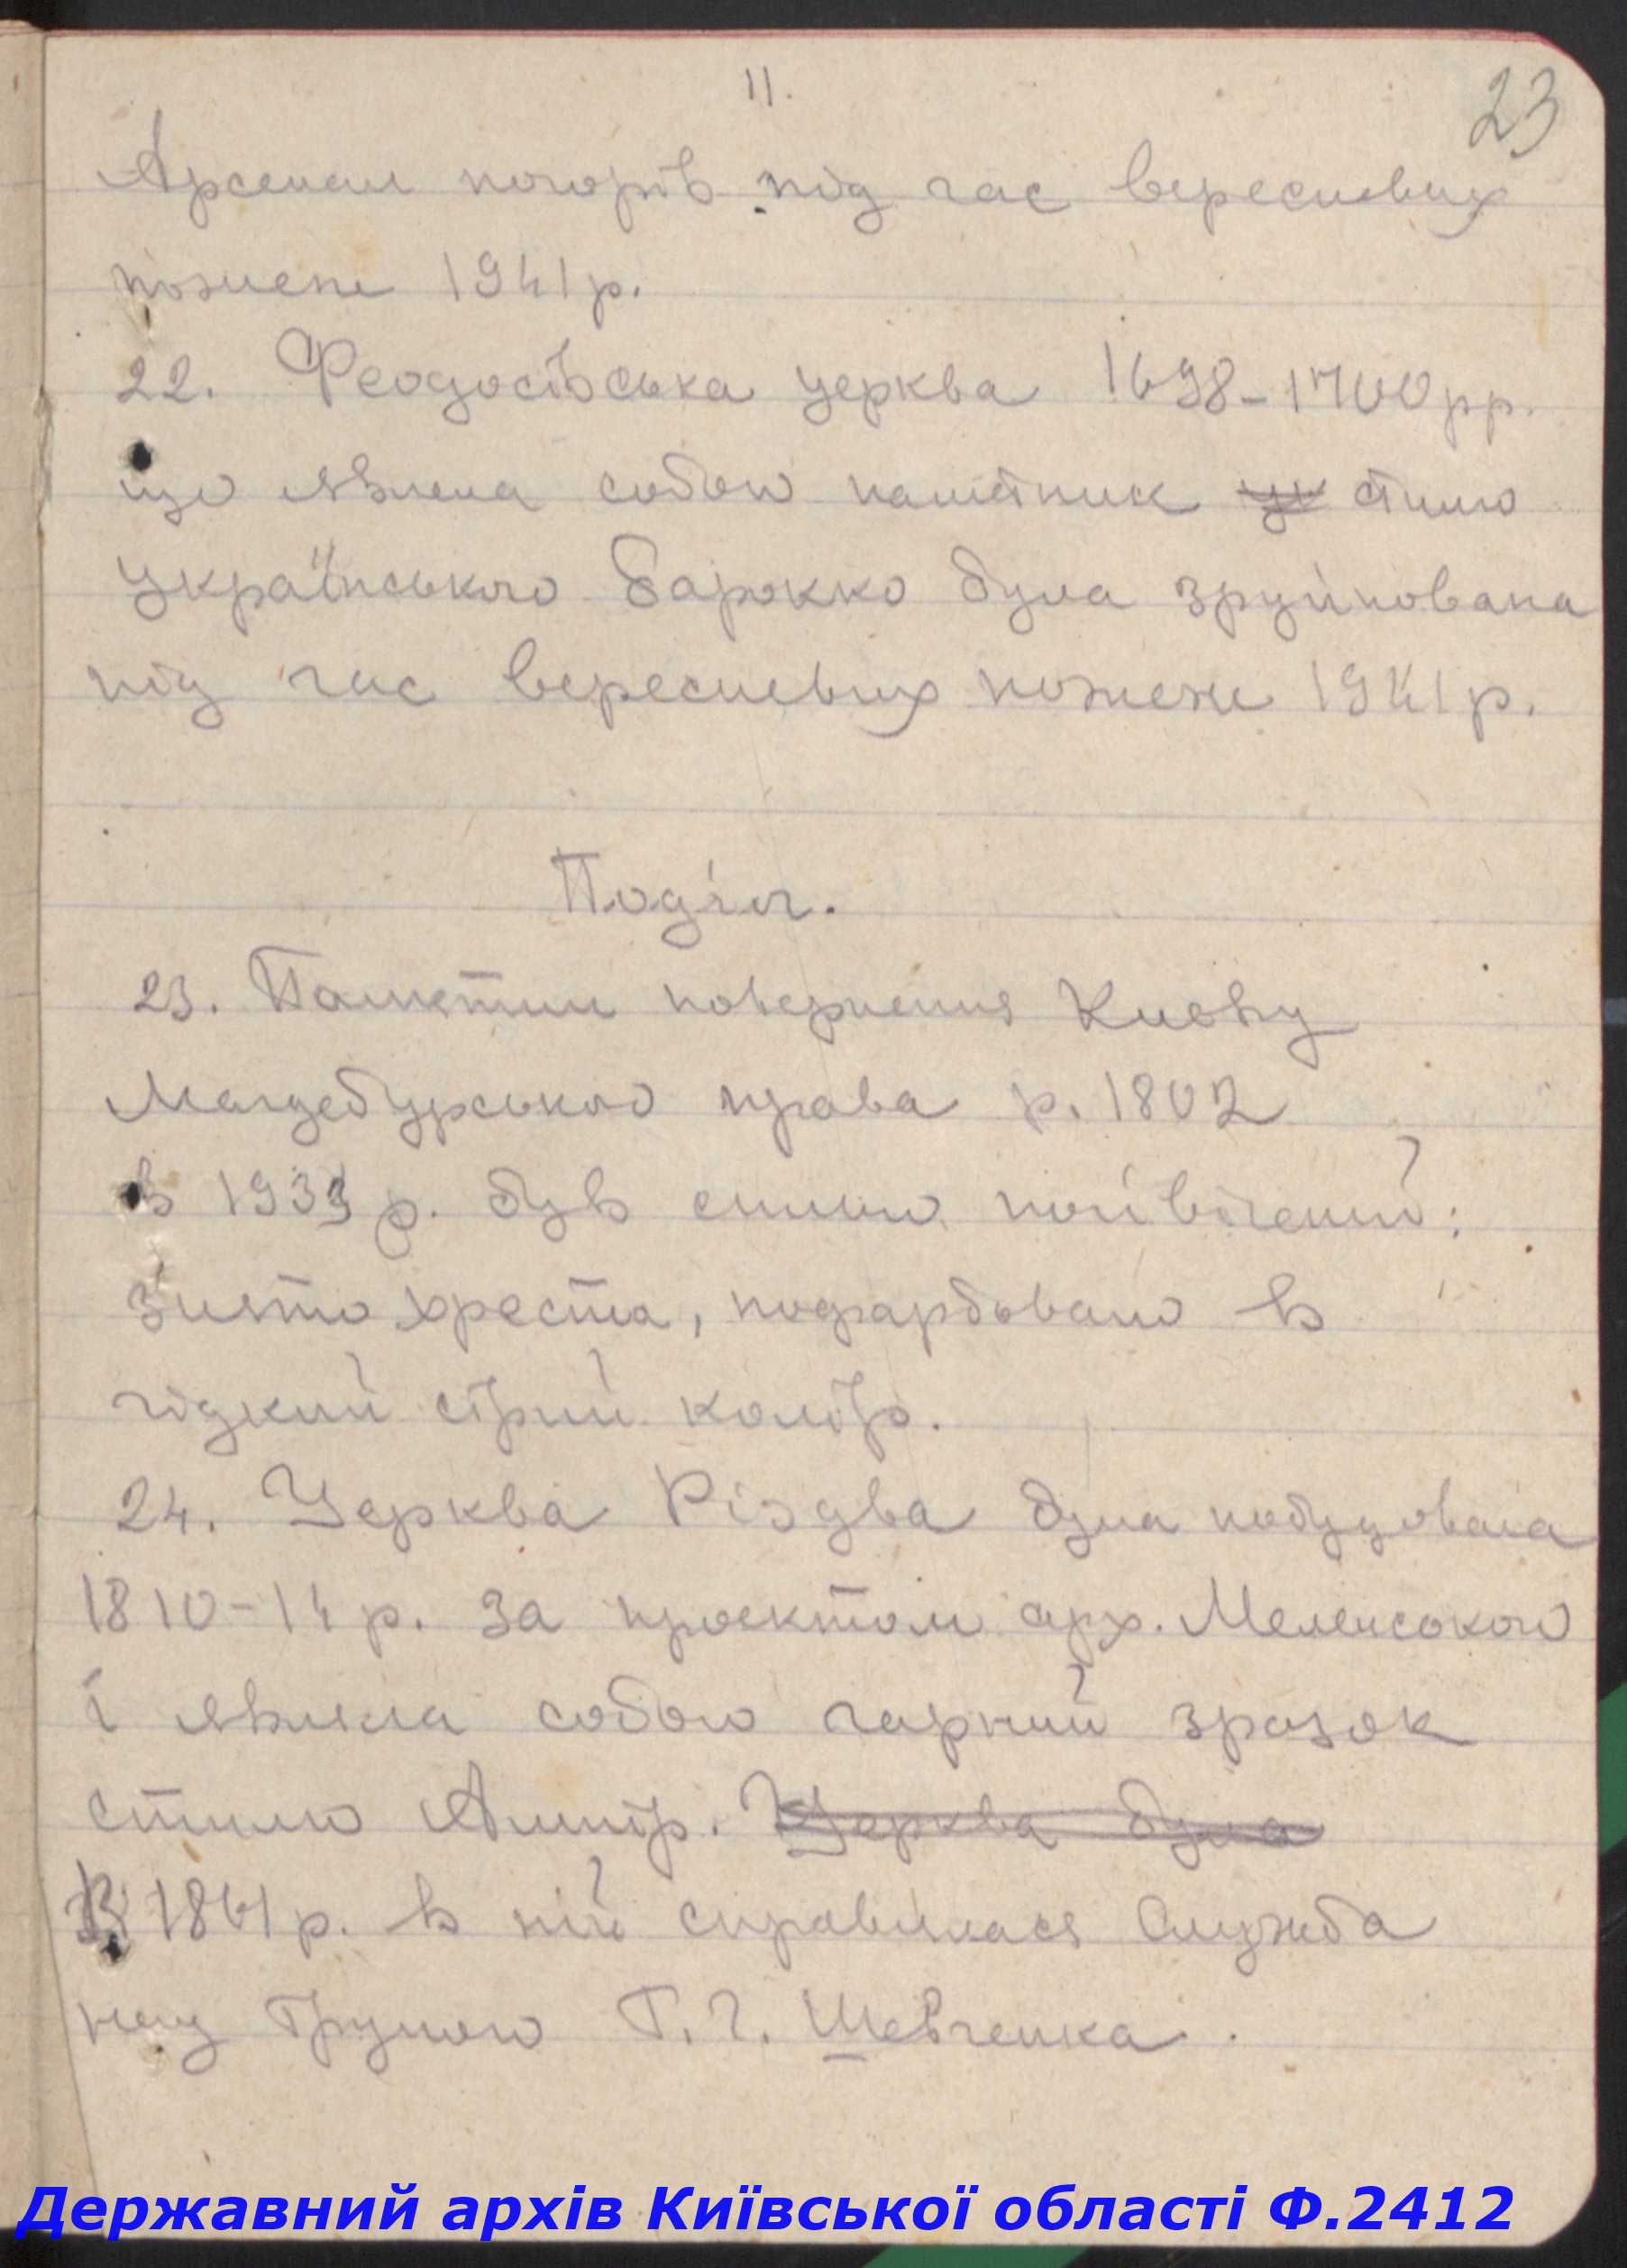 11.
23
Арсенал погорів під час вересневих
пожеж 1941 р.
22. Феодосівська церква 1698-1700 рр.
що являла собою памятник стилю
Українського Барокко була зруйнована
під час вересневих пожеж 1941 р.
Поділ.
23. Памятник повернення Києву
Магдебурського права р. 1802
в 1933 р. був спливо
знято хреста, пофарбовано в
гідкий сірий колір.
24. Церква Різдва була побудована
1810-14 р. За проектом арх. Меленського
і являла собою гарний зразок
стилю Ампір. Церква була
В 1861 р. в ній справлялася Служба
над Труною Т. Г. Шевченка.
Державний архів Київської області Ф.2412